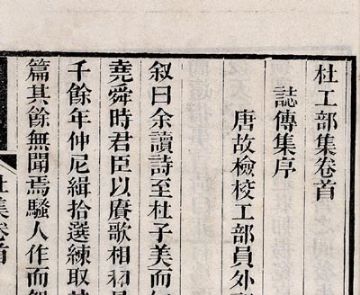 杜工部集卷首
誌傳集序
唐故檢校工部員外
叙曰余讀詩至杜子美而
堯舜時君臣以賡歌相和
千餘年仲尼緝拾選練取
篇其餘無聞焉騷人作而